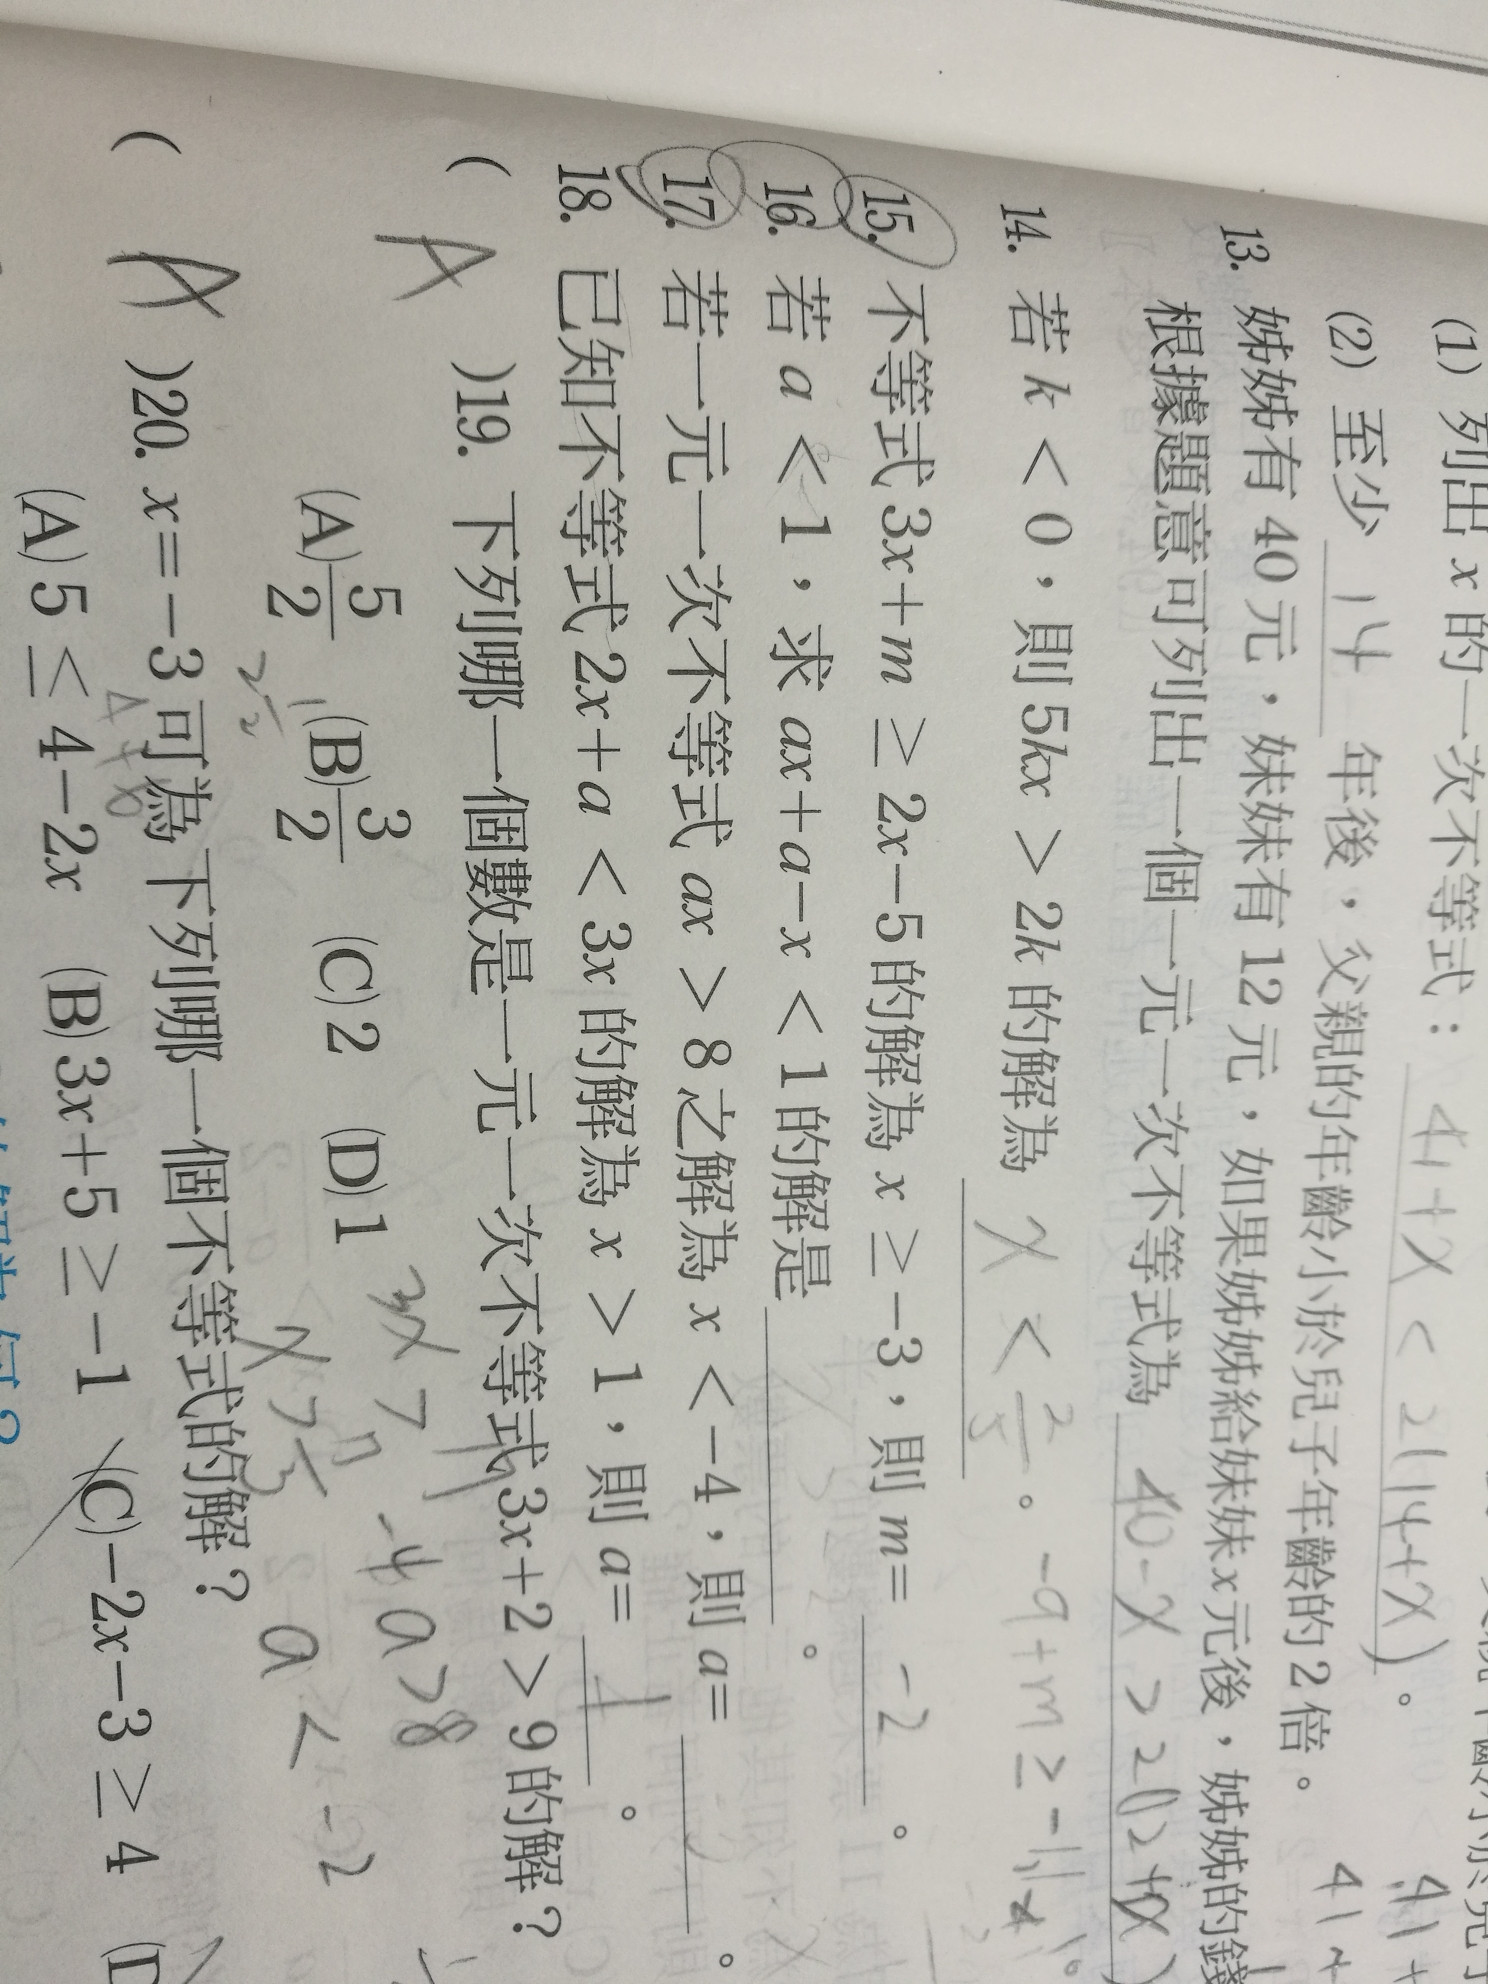 (1) 列出 x 的一次不等式： 41+x < 2(14+x)。
(2) 至少 14 年後，父親的年齡小於兒子年齡的 2 倍。
13. 姊姊有 40 元，妹妹有 12 元，如果姊姊給妹妹 x 元後，姊姊的錢
根據題意可列出一個一元一次不等式為 40-x > 2(12+x)
14. 若 k < 0，則 5kx > 2k 的解為 x < 2/5。
-9+m ≥ -11
15. 不等式 3x+m ≥ 2x-5 的解為 x ≥ -3，則 m= -2。
16. 若 a < 1，求 ax+a-x < 1 的解是 。
17. 若一元一次不等式 ax > 8 之解為 x < -4，則 a= 。
18. 已知不等式 2x+a < 3x 的解為 x > 1，則 a= 1。
( A )19. 下列哪一個數是一元一次不等式 3x+2 > 9 的解？
(A) 5/2 (B) 3/2 (C) 2 (D) 1
3x > 7
-4a > 8
2 1/2
x > 7/3
a < -2
( A )20. x=-3 可為下列哪一個不等式的解？
4+6
(A) 5 ≤ 4-2x (B) 3x+5 ≥ -1 (C) -2x-3 ≥ 4 (D